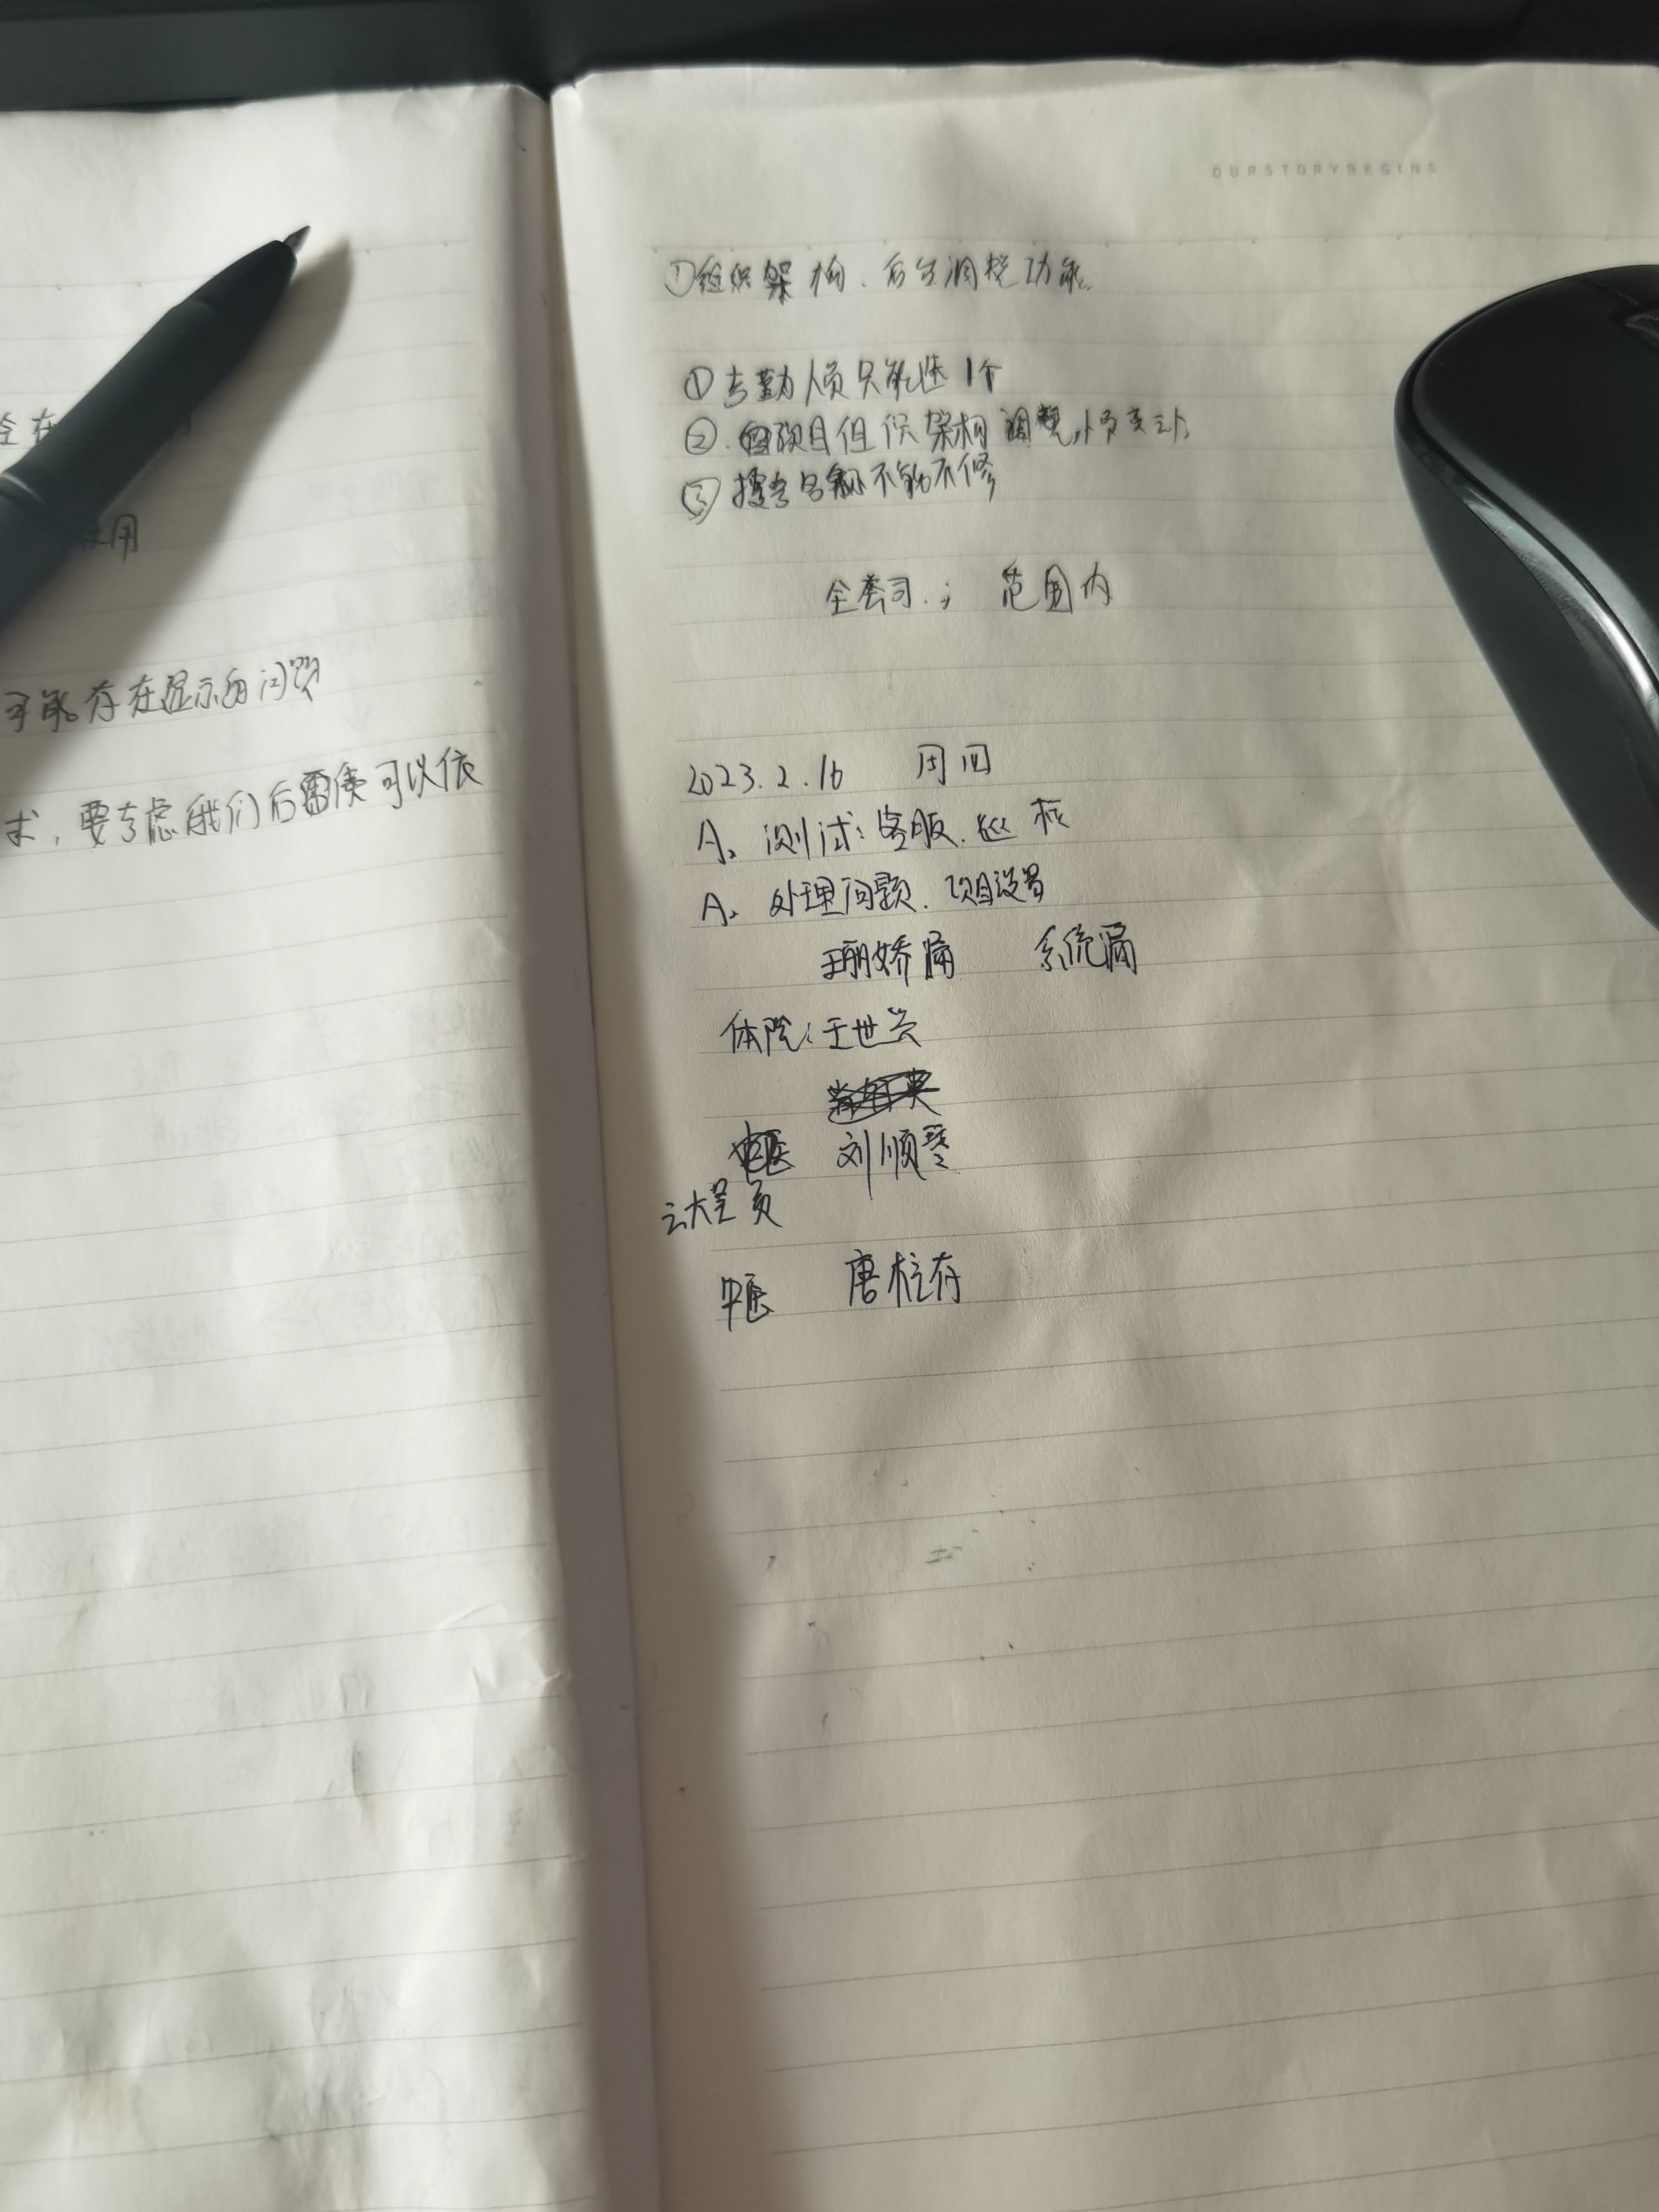 全在
使用
可能存在显示的问题
求，要考虑我们后需使可以依
OURSTORYBEGINS
①组织架构、后台调整功能
①考勤人员只能选1个
②项目组织架构调整,
③名称不能不修
全公司.; 范围内
2023.2.16 周四
A、测试:客服.巡核
A、处理问题.项目设置
王丽娇漏 系统漏
体院:王世兴
刘顺琴
云大呈贡
中医 唐柱存